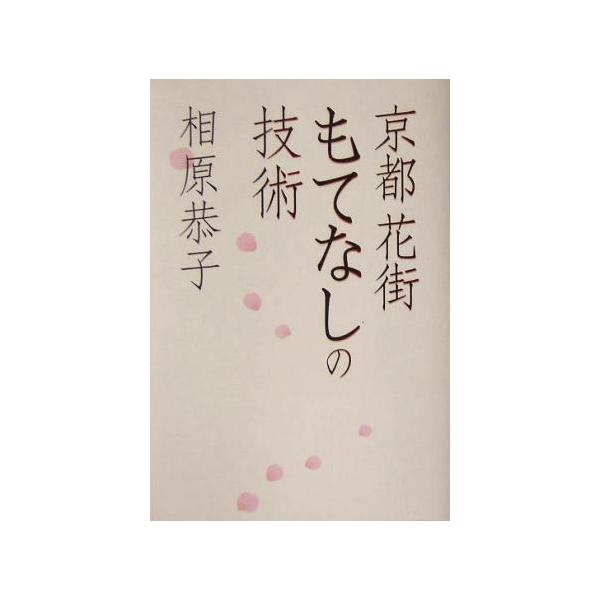 京都 花街
もてなしの
技術
相原恭子